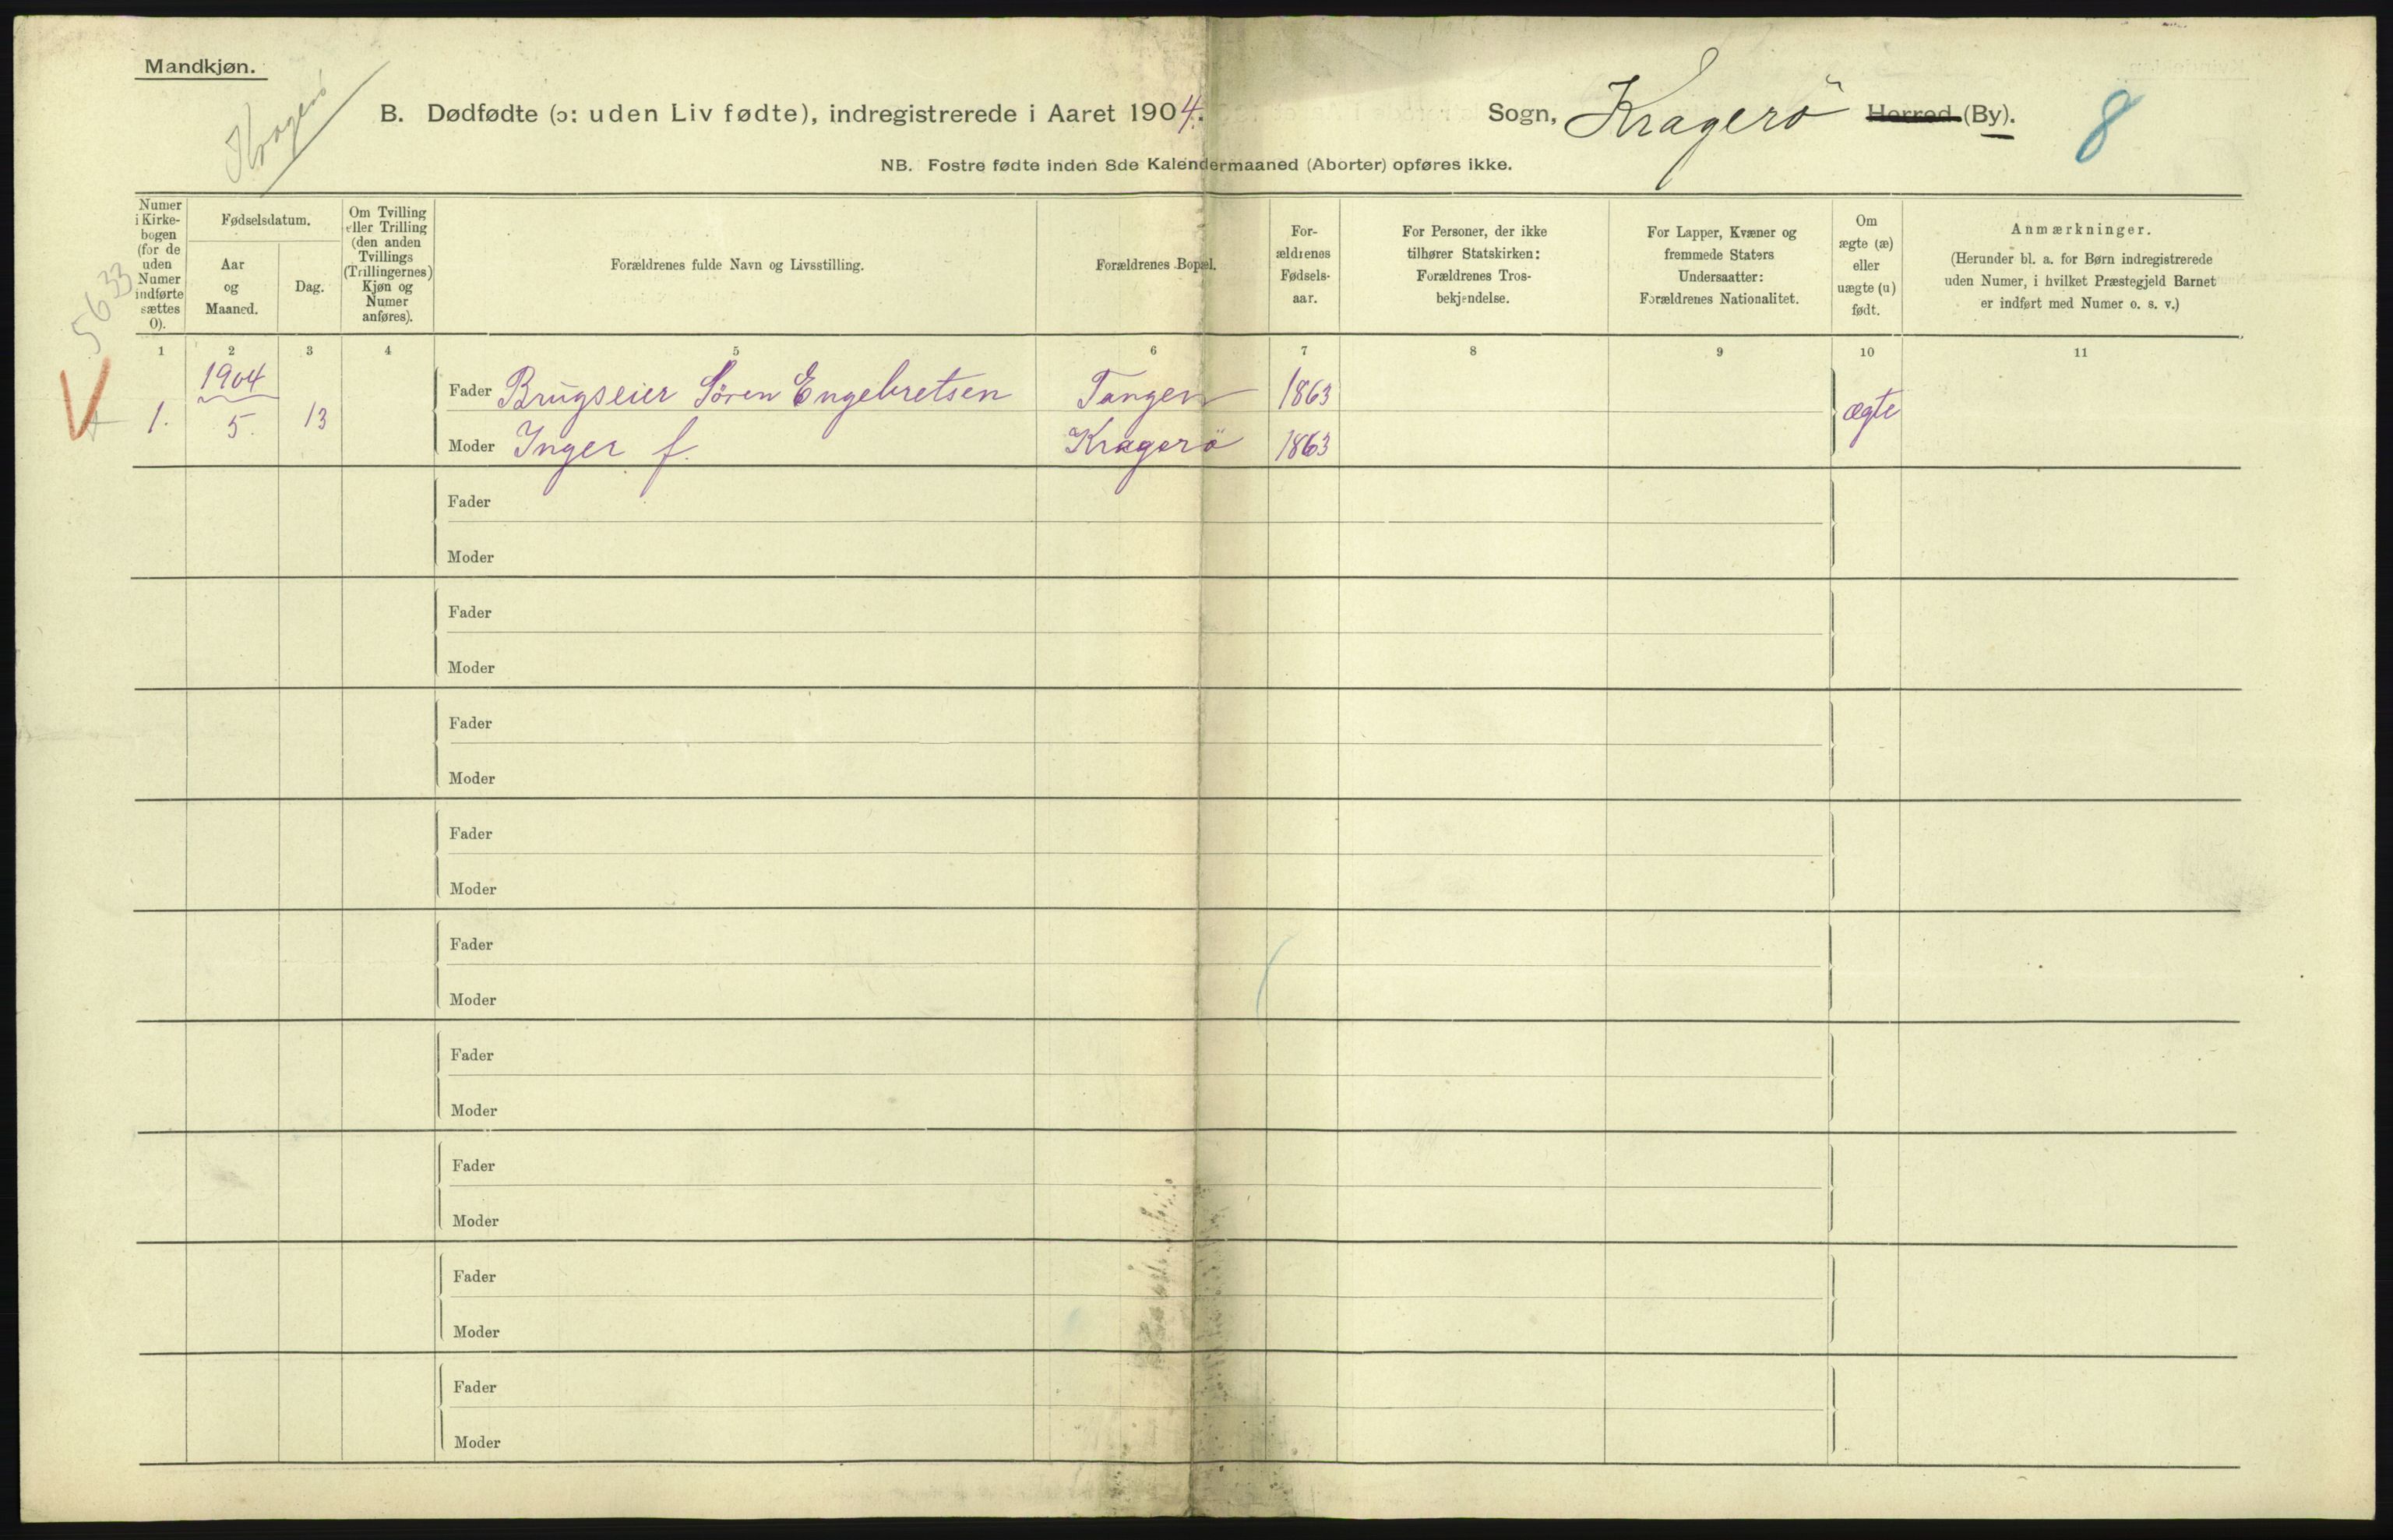 Mandkjøn.
Kragerö
B. Dødfødte (ɔ: uden Liv fødte), indregistrerede i Aaret 1904. Sogn, Kragerö Herred (By). 8
NB. Fostre fødte inden 8de Kalendermaaned (Aborter) opføres ikke.
Numer
i Kirke-
bogen
(for de
uden
Numer
indførte
sættes
0).
Fødselsdatum.
Aar
og
Maaned.
Dag.
Om Tvilling
eller Trilling
(den anden
Tvillings
(Trillingernes)
Kjøn og
Numer
anføres).
Forældrenes fulde Navn og Livsstilling.
Forældrenes Bopæl.
For-
ældrenes
Fødsels-
aar.
For Personer, der ikke
tilhører Statskirken:
Forældrenes Tros-
bekjendelse.
For Lapper, Kvæner og
fremmede Staters
Undersaatter:
Forældrenes Nationalitet.
Om
ægte (æ)
eller
uægte (u)
født.
Anmærkninger.
(Herunder bl. a. for Børn indregistrerede
uden Numer, i hvilket Præstegjeld Barnet
er indført med Numer o. s. v.)
5633
1 2 3 4 5 6 7 8 9 10 11
1904
Fader Brugseier Sören Engebretsen Tangen 1863
1. 5. 13 ægte
Moder Inger f. Kragerö 1863
Fader
Moder
Fader
Moder
Fader
Moder
Fader
Moder
Fader
Moder
Fader
Moder
Fader
Moder
Fader
Moder
Fader
Moder